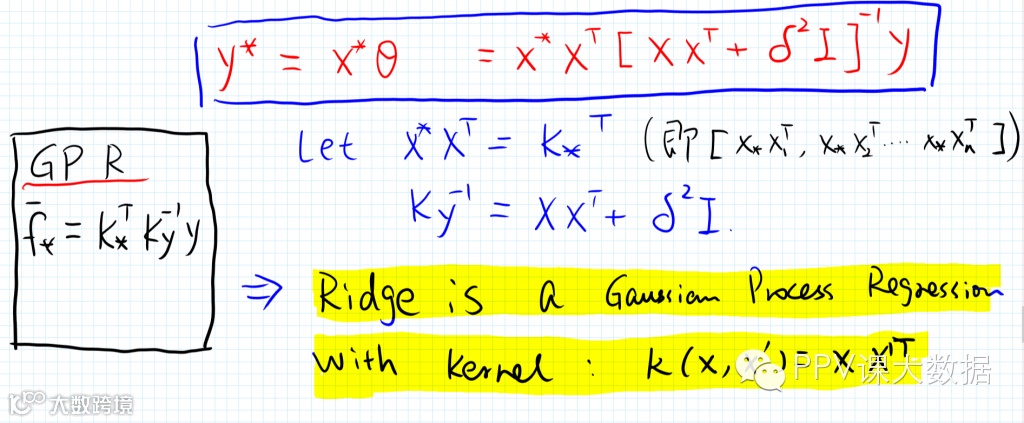 y* = x*θ = x*X^T [XX^T + δ²I]^-1 y
Let x*X^T = k*^T (即[x*x₁^T, x*x₂^T .... x*xₙ^T])
Ky^-1 = XX^T + δ²I.
GPR
f̄* = k*^T Ky^-1 y
⇒ Ridge is a Gaussian Process Regression
with kernel : k(x, x') = x x'^T
PPV课大数据
大数跨境